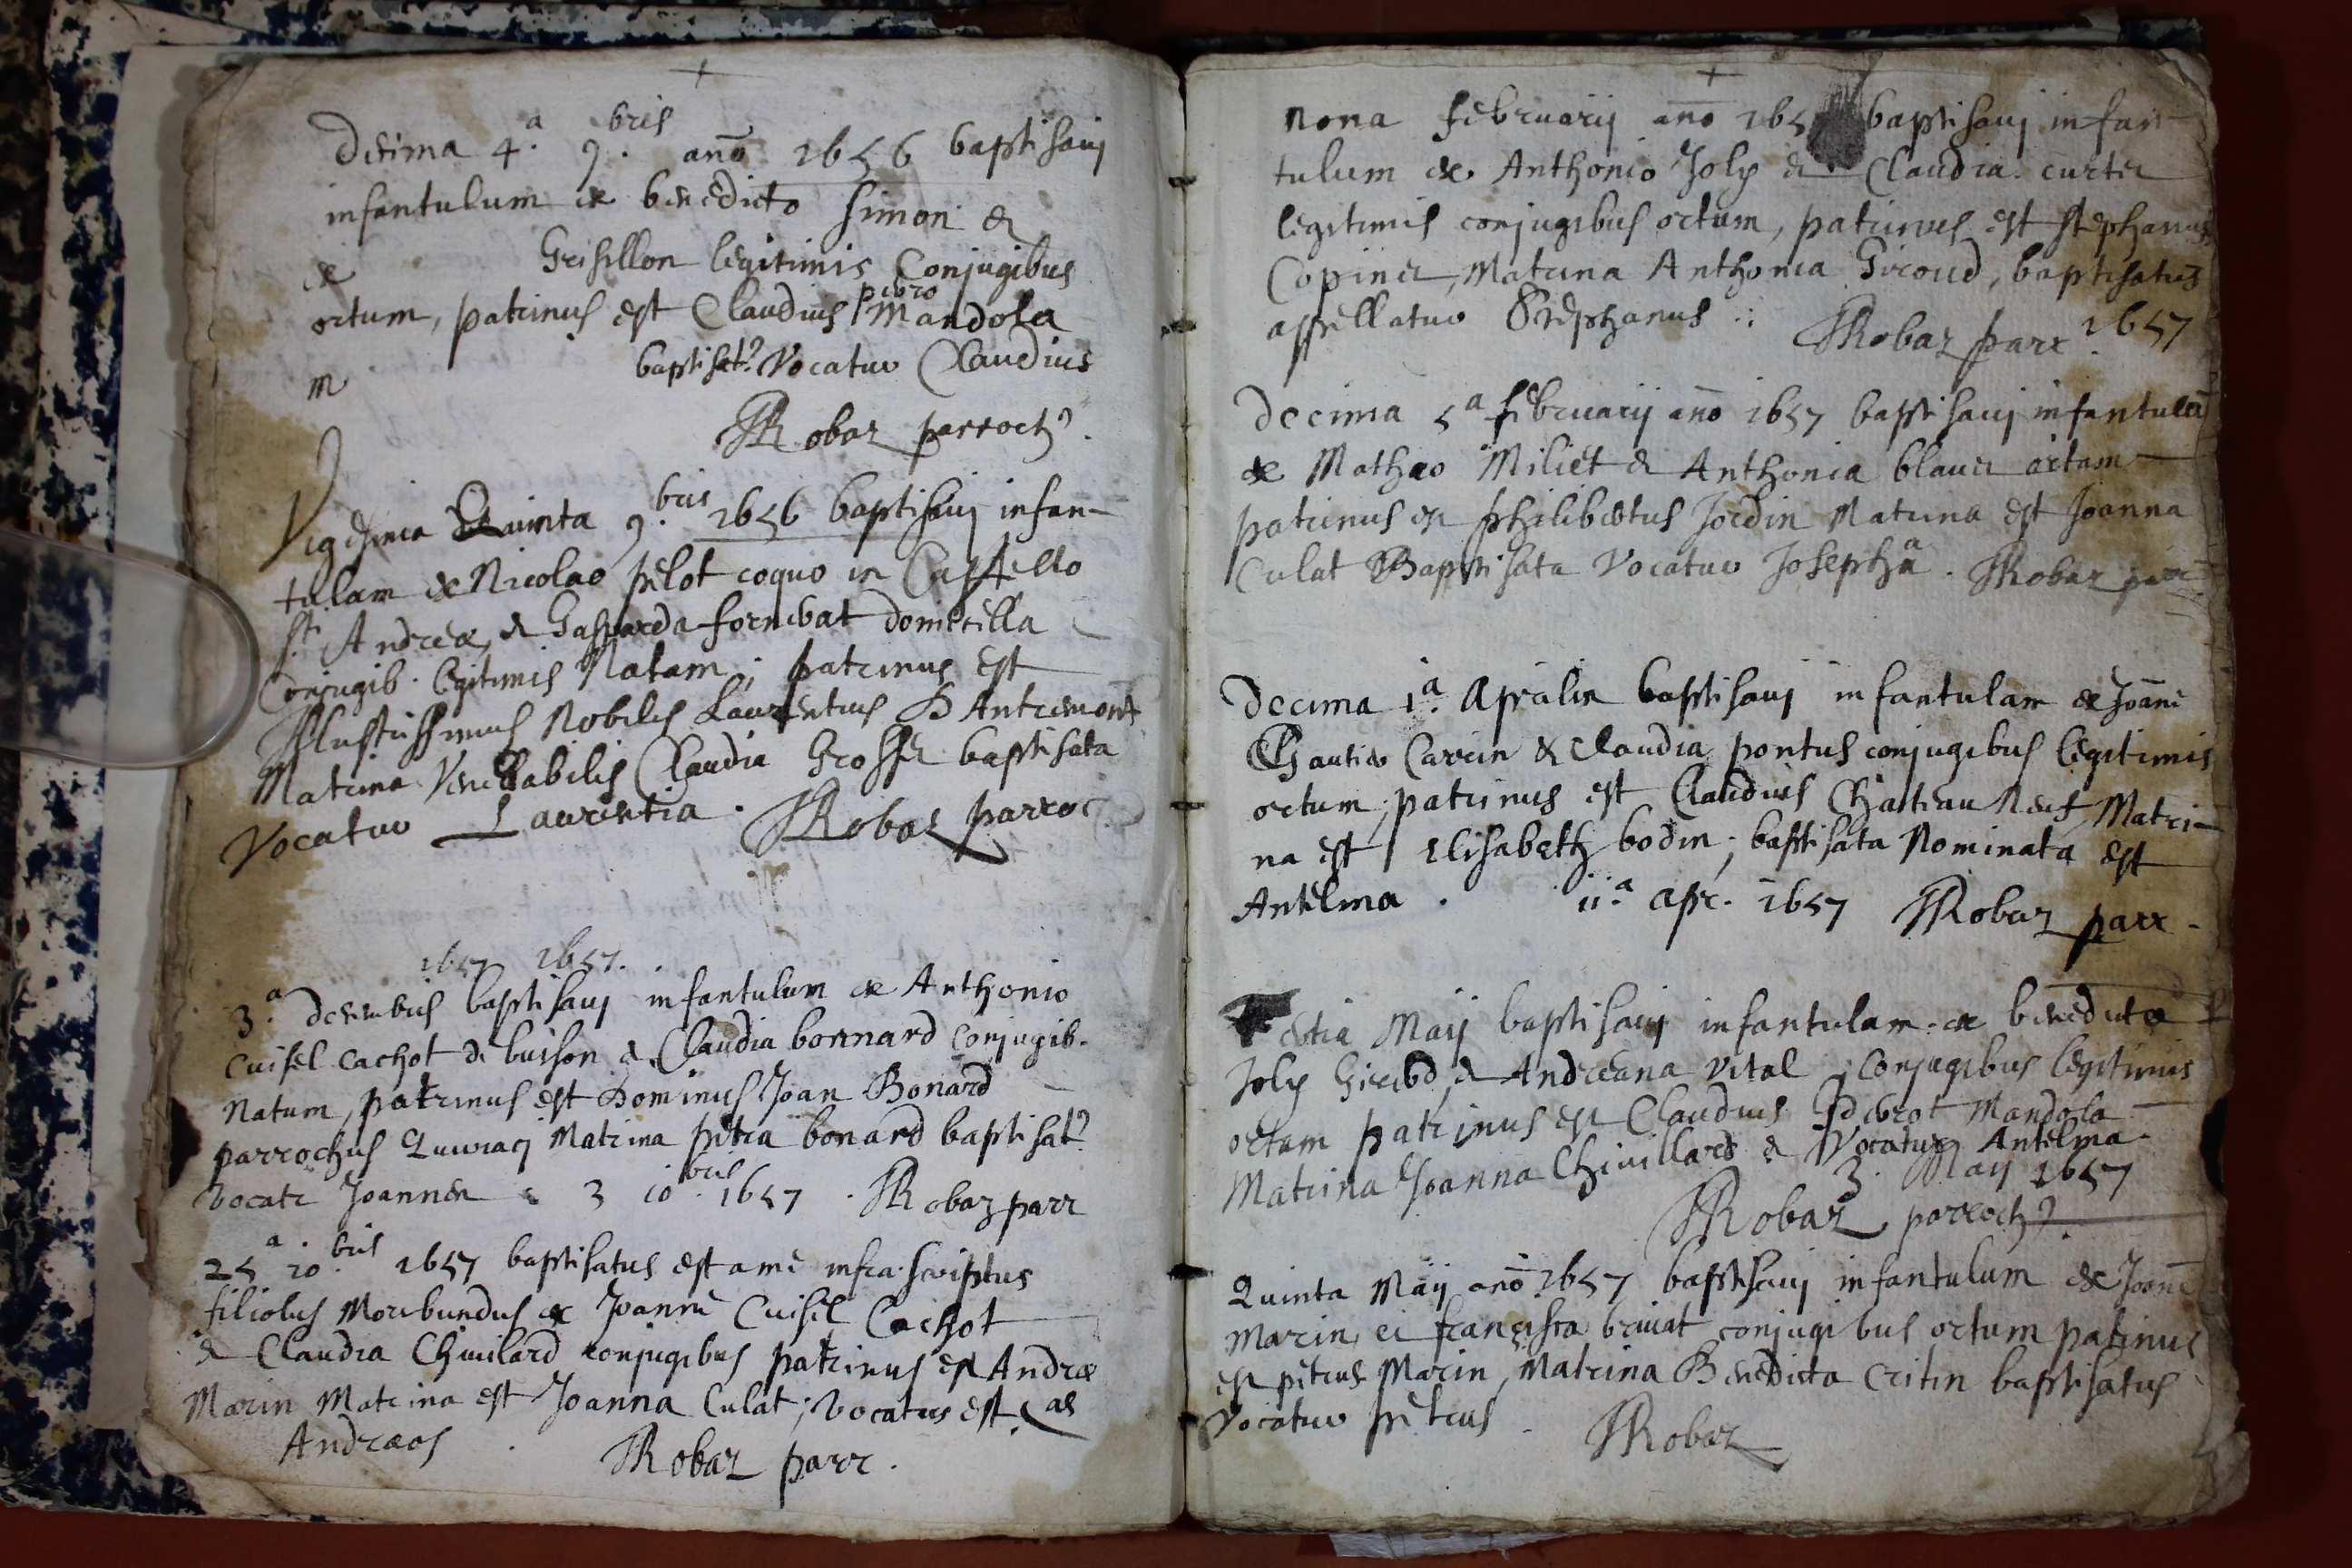 Decima 4.a 9.bris año 1656 baptisavi
infantulum ex benedicto Simon &
ex Grisillon legitimis Conjugibus
ortum, patrinus est Claudius Mandola
m baptisat9 Vocatur Claudius
Robaz parroch9.
Vigesima Quinta 9.bris 1656 baptisavi infan-
tulam ex Nicolao pelot coquo in Castello
Sti Andreæ, & Gasparda fornebat domicella
Conjugib. legitimis Natam; patrinus est
Illustrissimus Nobilis Laurentius D Antremont
Matrina Venerabilis Claudia Grosset baptisata
Vocatur Laurentia. Robaz parroc
1657 1657.
3.a decembris baptisavi infantulum ex Anthonio
Cuisel cachot de buison & Claudia bonnard conjugib.
Natum, patrinus est Dominus Joan Bonard
parrochus Matrina petra bonard baptisat9
Vocatr Joannes 3 10.bris 1657. Robaz parr
25a. 10.bris 1657 baptisatus est a me infra scriptus
filiolus Moribundus ex Joanne Cuisil Cachot
& Claudia Chivilard conjugibus patrinus est Andræ
Marin Matrina est Joanna Culat; vocatus est
Andræas. Robaz parr.
Nona februarij ano 165 baptisavj infan-
tulum ex Anthonio Joly & Claudia curtet
legitimis conjugibus ortum, patrinus est Stephanus
Copinet, Matrina Anthonia Giroud, baptisatus
appellatur Stephanus. Robaz parr. 1657
Decima 5a februarij año 1657 baptisavj infantulã
ex Mathæo Miliet & Anthonia blanci ortam
patrinus est philibertus Jordin Matrina est Joanna
Culat Baptisata Vocatur Josepha. Robaz parr
Decima 1.a Aprilis baptisavj infantulam ex Joãne
Gautier Carrin & Claudia pontus conjugibus legitimis
ortum, patrinus est Claudius Chasteau Neuf Matri-
na est Elisabeth bodin; baptisata Nominata est
Antelma. ii.a apr. 1657 Robaz parr.
ertia Maij baptisavj infantulam ex benedicto
Joly Giribod & Andreana Vital Conjugibus legitimis
ortam patrinus est Claudius Mandola
Matrina Joanna Chivillard & Vocatur Antelma.
3 Maij 1657
Robaz parroch9.
Quinta Maij año 1657 baptisavj infantulum ex Joãne
Marin et francisca brivat conjugibus ortum patrinus
est petrus Marin, Matrina Benedicta Critin baptisatus
Vocatur petrus. Robaz